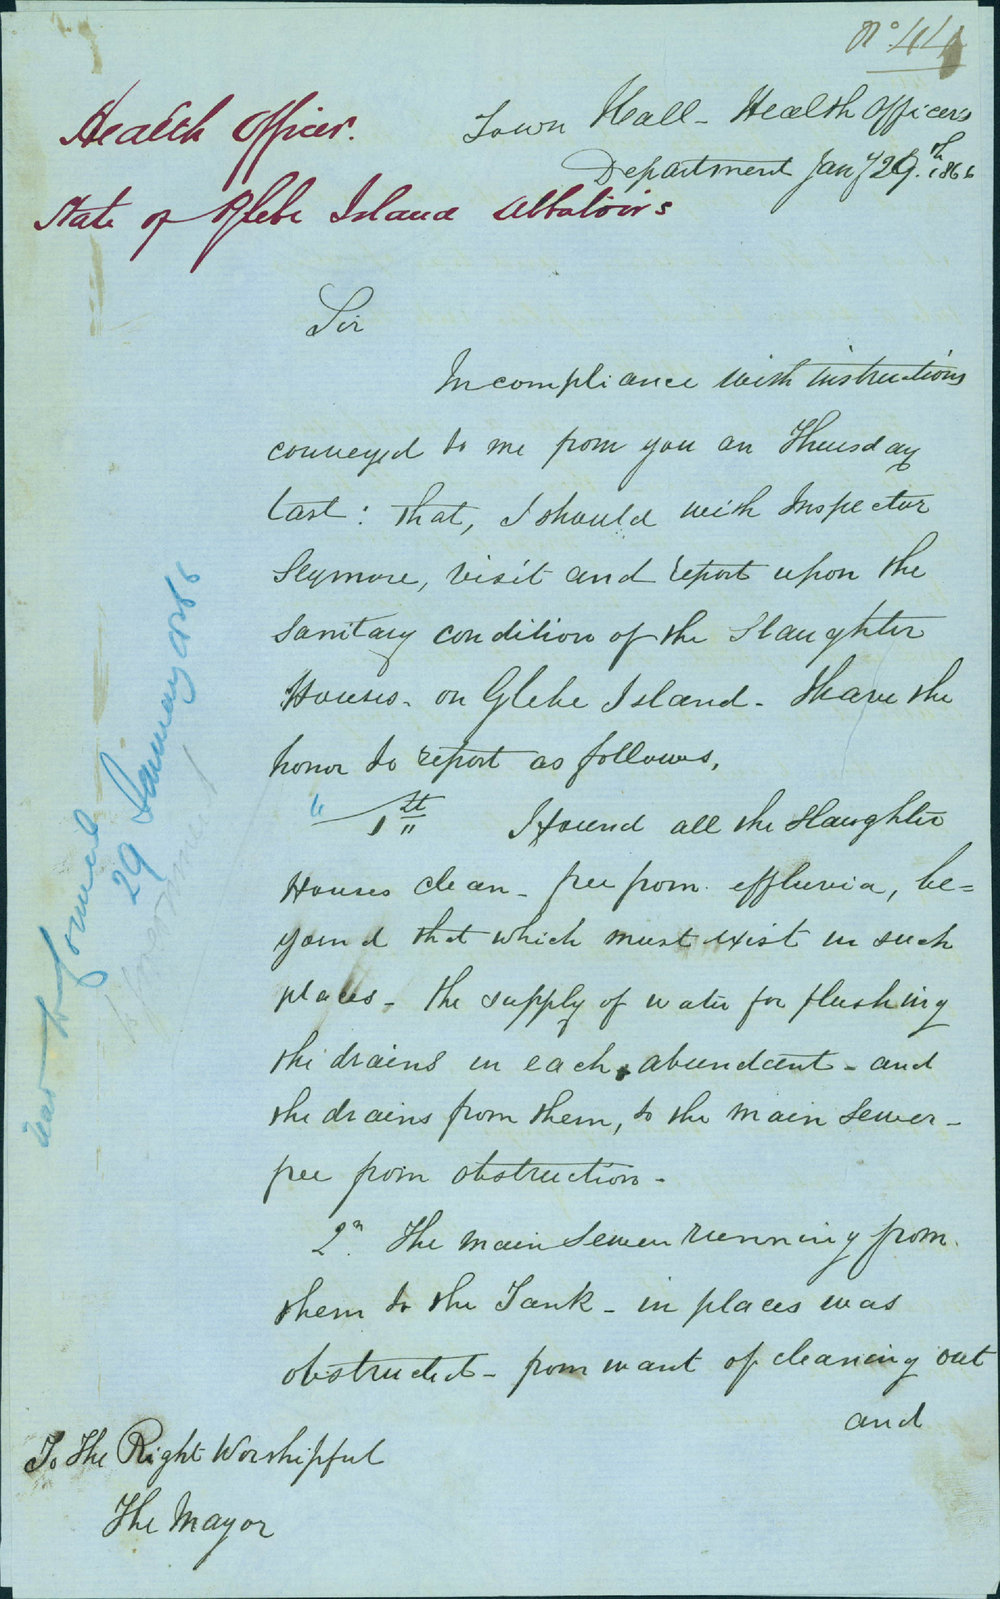 No 44
Health Officer.
Town Hall - Health Officers
Department Jany 29th. 1866
State of Glebe Island Abbatoirs
Sir
In compliance with instructions
conveyed to me from you on Thursday
last: that, I should with Inspector
Seymore, visit and report upon the
Sanitary condition of the Slaughter
Houses - on Glebe Island - I have the
honor to report as follows,
" 1st I found all the Slaughter
Houses clean - free from effluvia, be=
yond that which must exist in such
places - the supply of water for flushing
the drains in each, abundant - and
the drains from them, to the main sewer -
free from obstruction -
2n. The main sewer running from
them to the Tank - in places was
obstructed - from want of cleaning out
and
To The Right Worshipful
The Mayor
29 January 1866